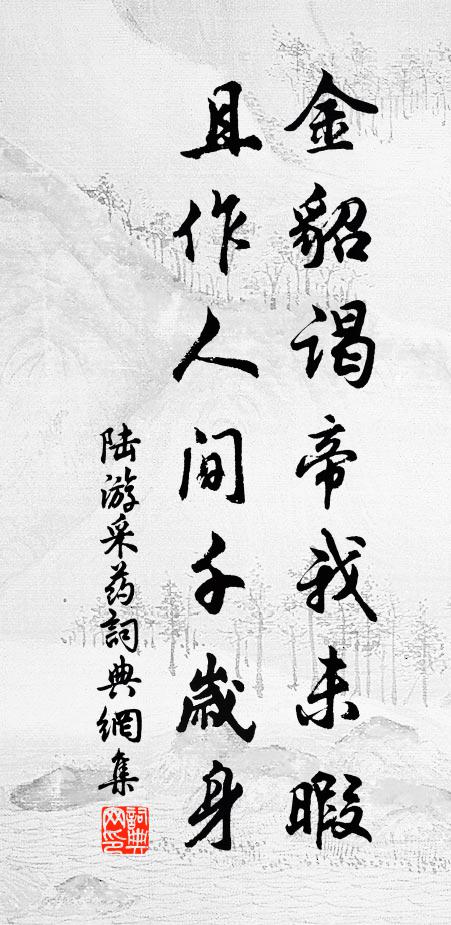 金貂謁帝我未暇
且作人间千歲身
陆游采药詞典網集
詞典网印